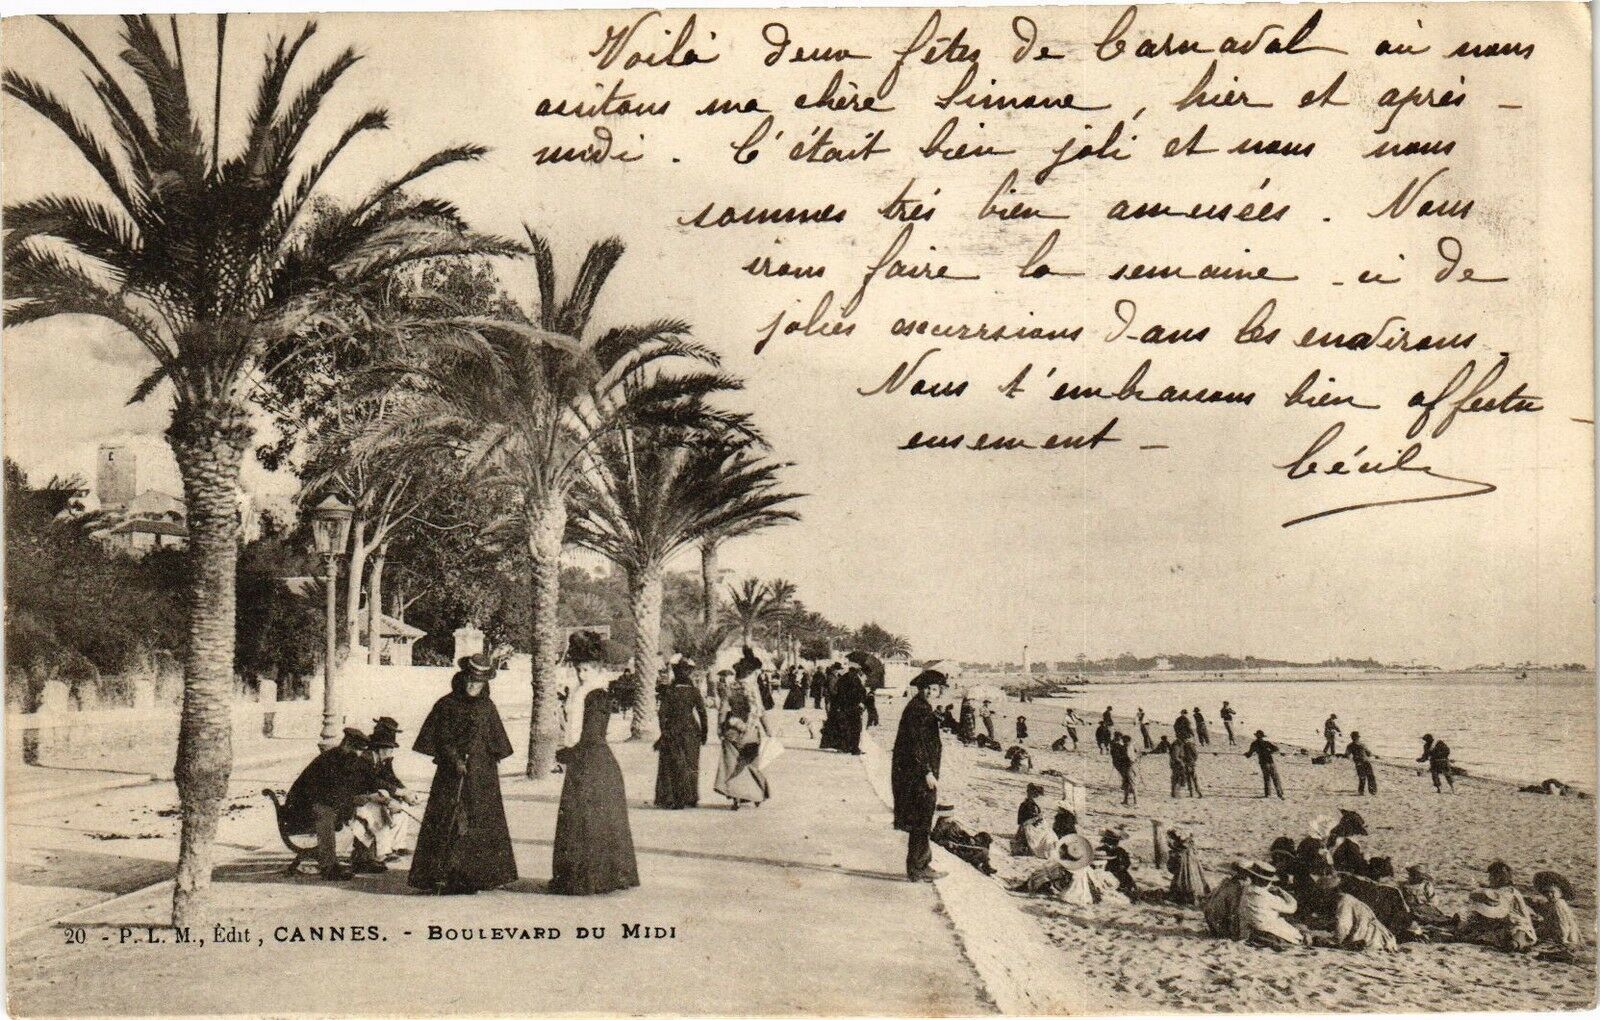 Voilà deux fêtes de Carnaval où nous
assitons ma chère Simone, hier et après-
midi. C'était bien joli et nous nous
sommes très bien amusées. Nous
irons faire la semaine-ci de
jolies excurrsions dans les environs.
Nous t'embrassons bien affectu-
eusement -
Cécile
20 - P. L. M., Édit, CANNES. - BOULEVARD DU MIDI